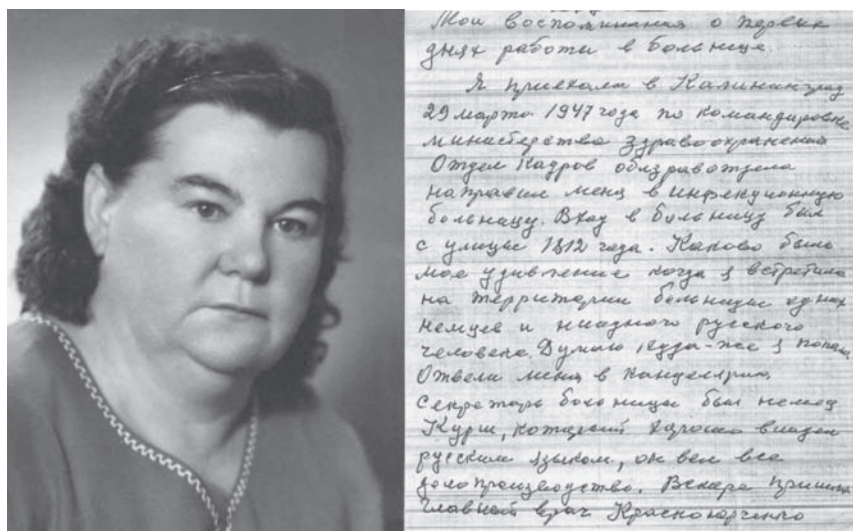 Мои воспоминания о первых
днях работы в больнице.
Я приехала в Калининград
29 марта 1947 года по командировке
министерства здравоохранения
Отдел кадров облздравотдела
направил меня в инфекционную
больницу. Вход в больницу был
с улицы 1812 года. Каково было
мое удивление когда я встретила
на территории больницы одних
немцев и ниодного русского
человека. Думаю куда-же я попала
Отвели меня в канцелярию,
Секретарь больницы был немец
Курш, который хорошо владел
русским языком, он вел все
делопроизводство. Вскоре пришла
главный врач Краснокорченко